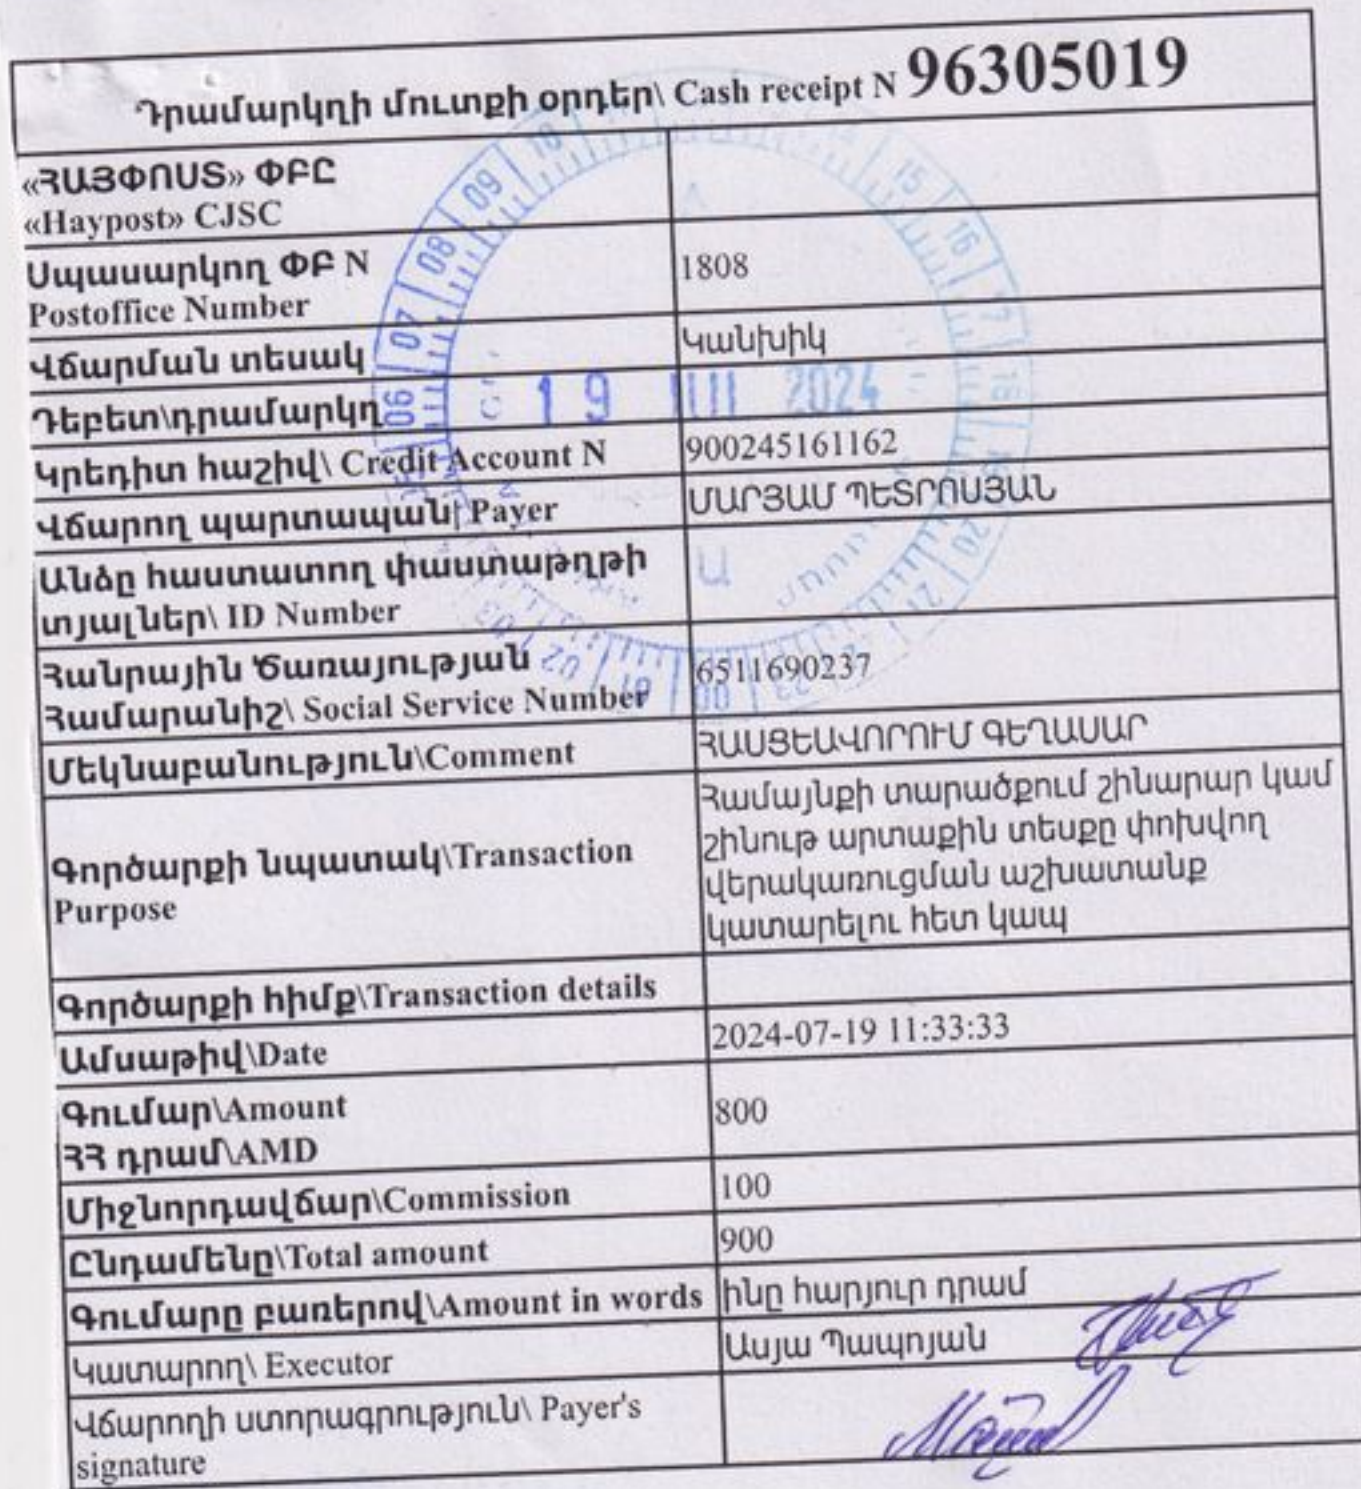 Դրամարկղի մուտքի օրդեր\ Cash receipt N 96305019
«ՀԱՅՓՈՍՏ» ՓԲԸ
«Haypost» CJSC
Սպասարկող ՓԲ N
Postoffice Number
1808
Վճարման տեսակ
Կանխիկ
Դեբետ\դրամարկղ
Կրեդիտ հաշիվ\ Credit Account N
900245161162
Վճարող պարտապան\ Payer
ՄԱՐՅԱՄ ՊԵՏՐՈՍՅԱՆ
Անձը հաստատող փաստաթղթի
տյալներ\ ID Number
Հանրային Ծառայության
Համարանիշ\ Social Service Number
6511690237
Մեկնաբանություն\Comment
ՀԱՍՑԵԱՎՈՐՈՒՄ ԳԵՂԱՍԱՐ
Գործարքի նպատակ\Transaction
Purpose
Համայնքի տարածքում շինարար կամ
շինութ արտաքին տեսքը փոխվող
վերակառուցման աշխատանք
կատարելու հետ կապ
Գործարքի հիմք\Transaction details
Ամսաթիվ\Date
2024-07-19 11:33:33
Գումար\Amount
ՀՀ դրամ\AMD
800
Միջնորդավճար\Commission
100
Ընդամենը\Total amount
900
Գումարը բառերով\Amount in words
ինը հարյուր դրամ
Կատարող\ Executor
Ասյա Պապոյան
Վճարողի ստորագրություն\ Payer's
signature
19 2024
06 07 08 09 10 14 15 16 17 18 19 20 21 23 00 01 02 03